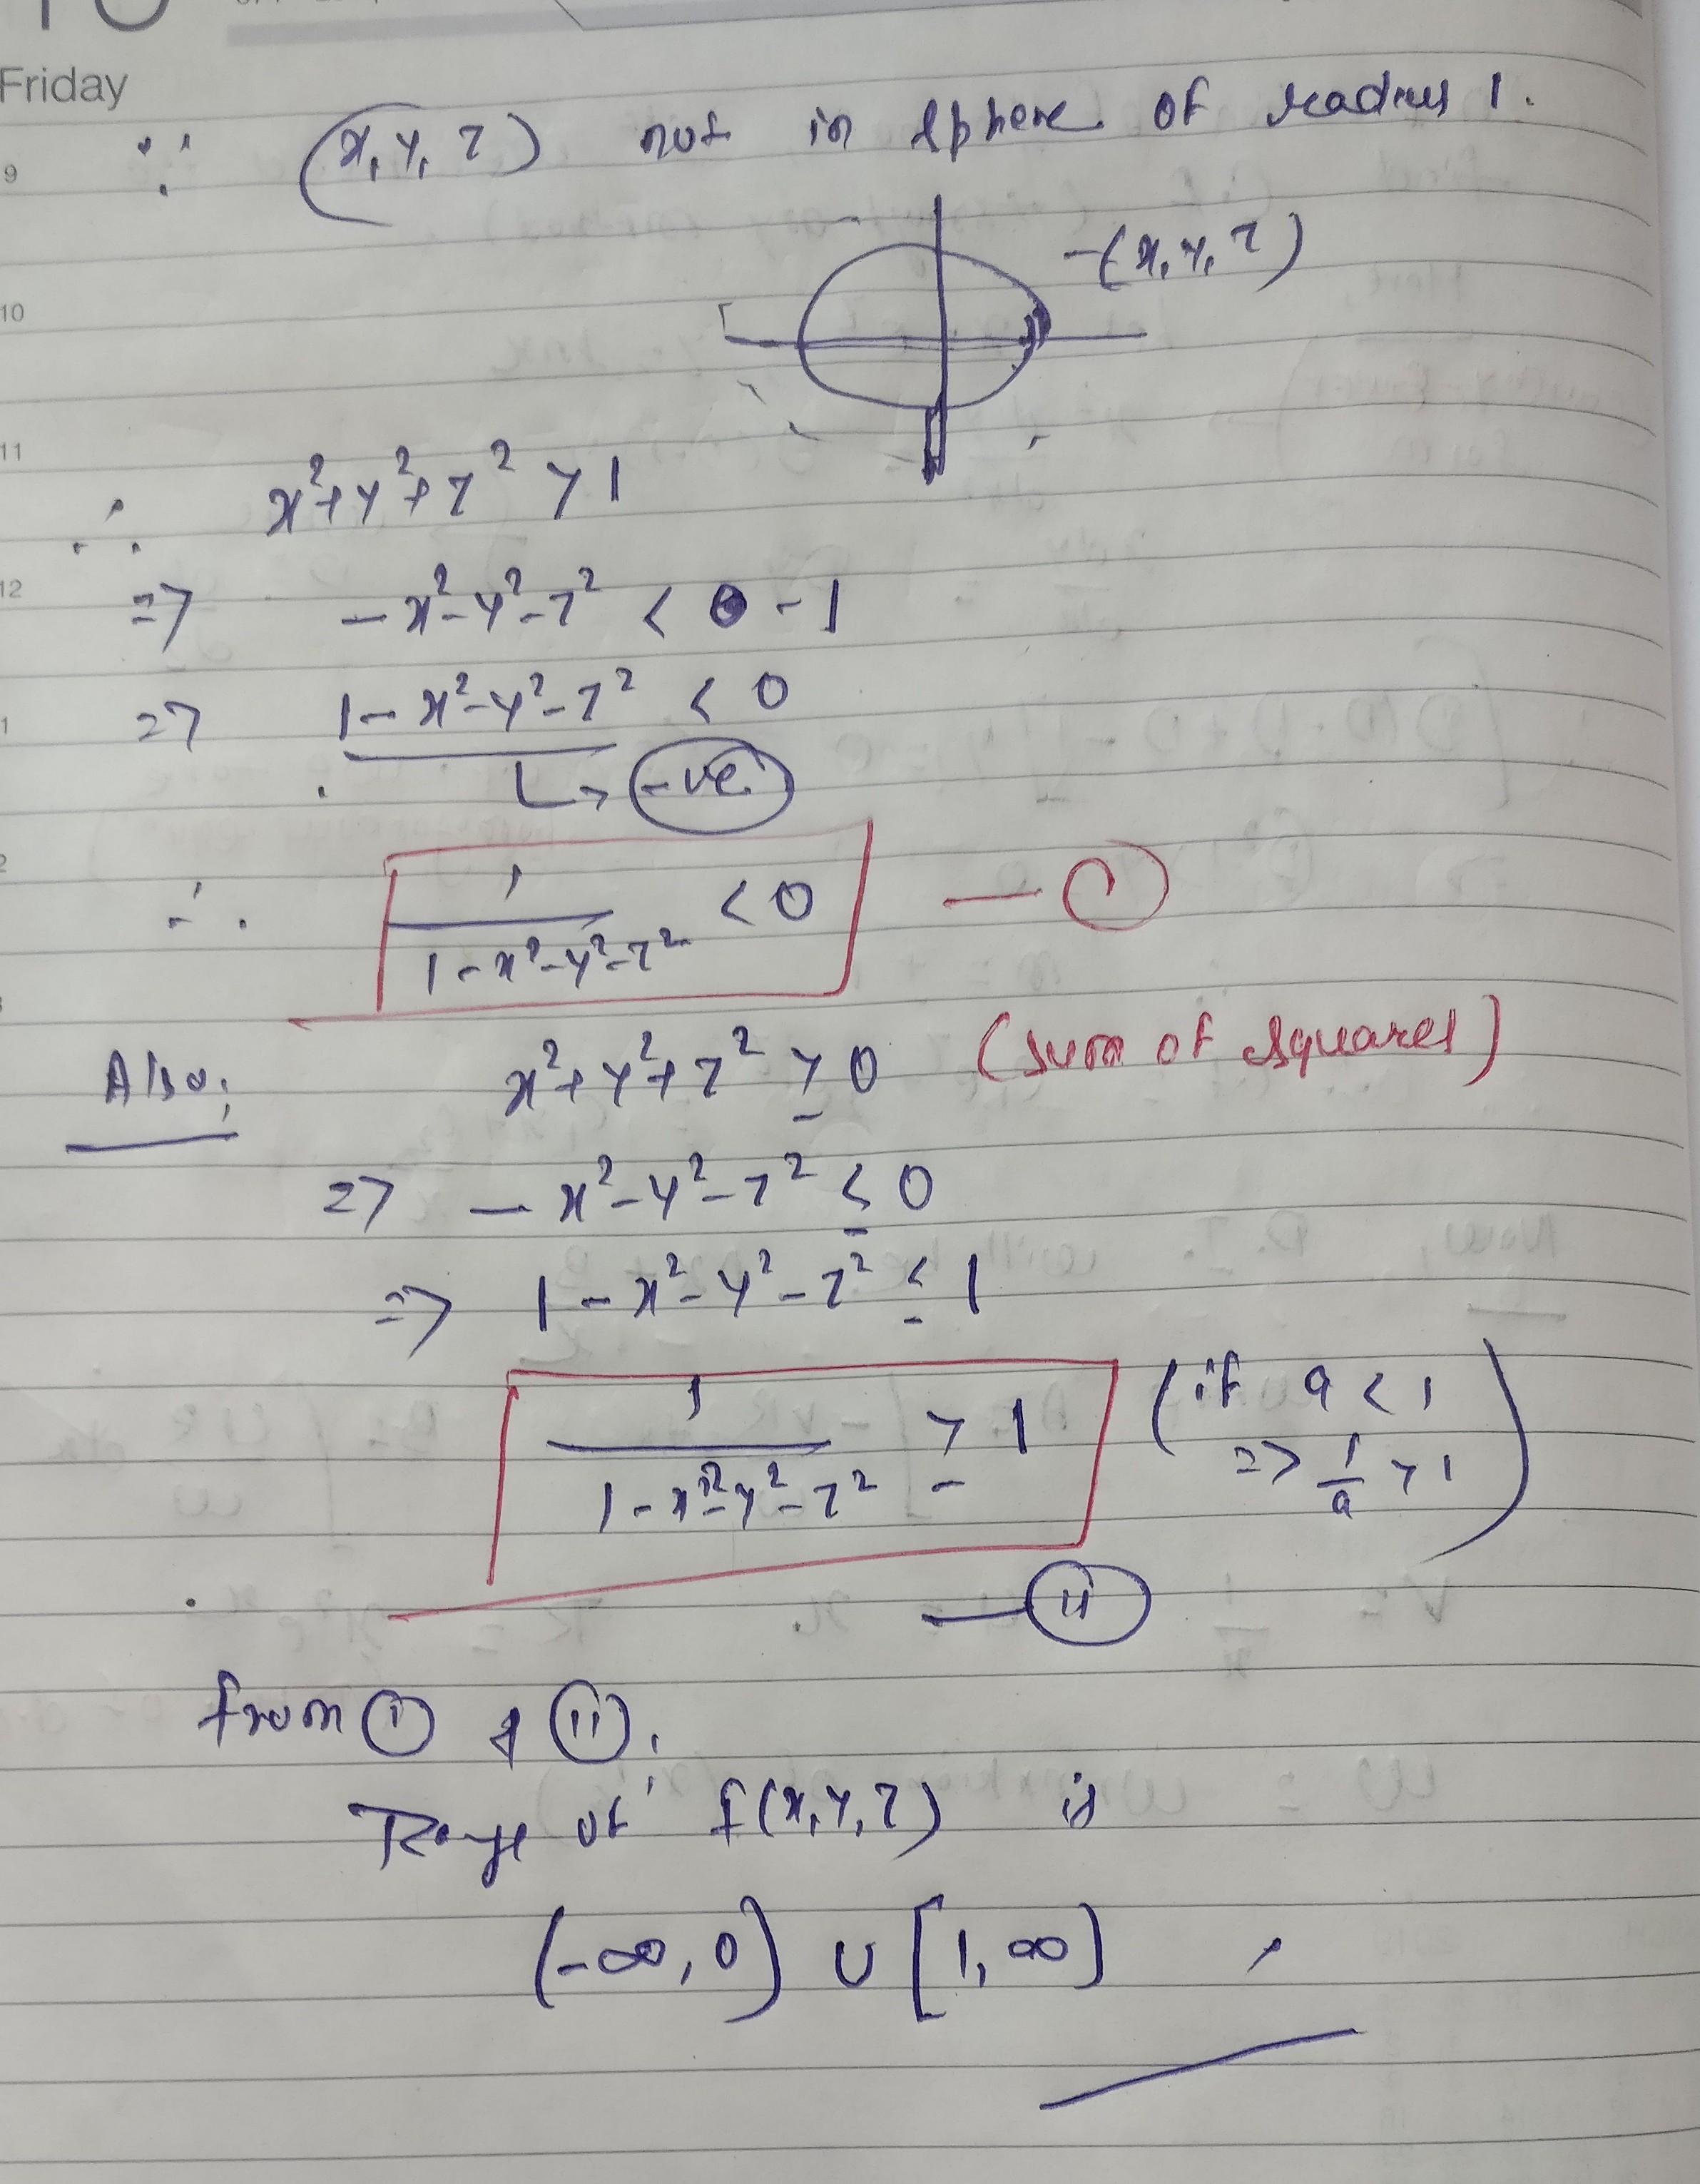 Friday
9
∵ (x, y, z) not in sphere of radius 1.
-(x, y, z)
10
11
∴ x²+y²+z² > 1
12
=> -x²-y²-z² < -1
1
=> 1-x²-y²-z² < 0
↳ -ve
2
∴ 1/(1-x²-y²-z²) < 0 — (i)
Also, x²+y²+z² ≥ 0 (sum of squares)
=> -x²-y²-z² ≤ 0
=> 1-x²-y²-z² ≤ 1
1/(1-x²-y²-z²) ≥ 1 (if a < 1
=> 1/a > 1)
— (ii)
from (i) & (ii),
Range of f(x, y, z) is
(-∞, 0) ∪ [1, ∞)